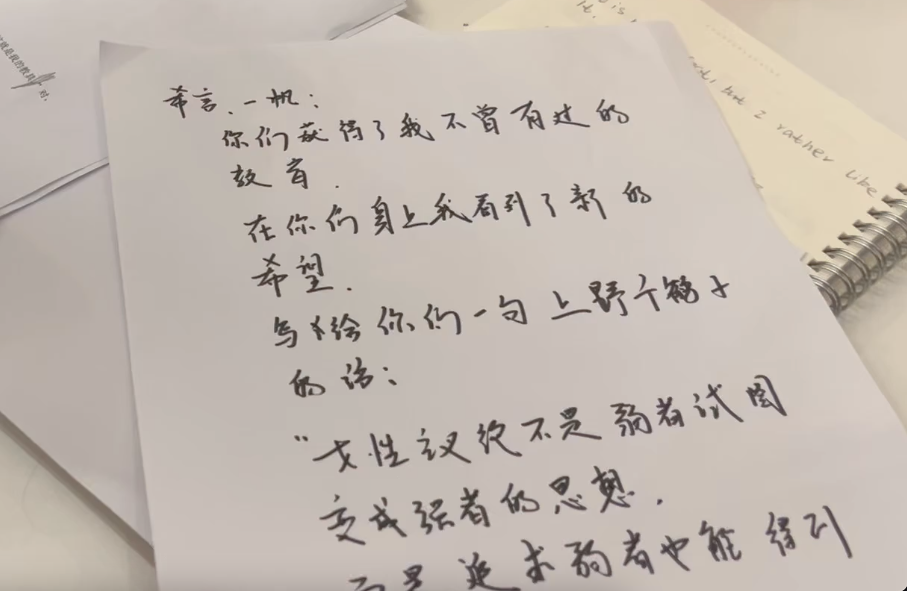 希言、一帆：
你们获得了我不曾有过的
教育.
在你们身上我看到了新的
希望.
写给你们一句上野千鹤子
的话：
"女性主义绝不是弱者试图
变成强者的思想,
而是追求弱者也能得到
就是我的教具
对.
but I rather like